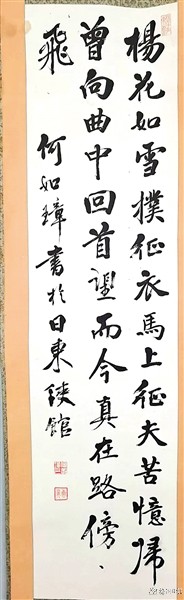 楊花如雪撲征衣馬上征夫苦憶歸
曾向曲中回首望而今真在路傍、
飛
何如璋書於日東使館